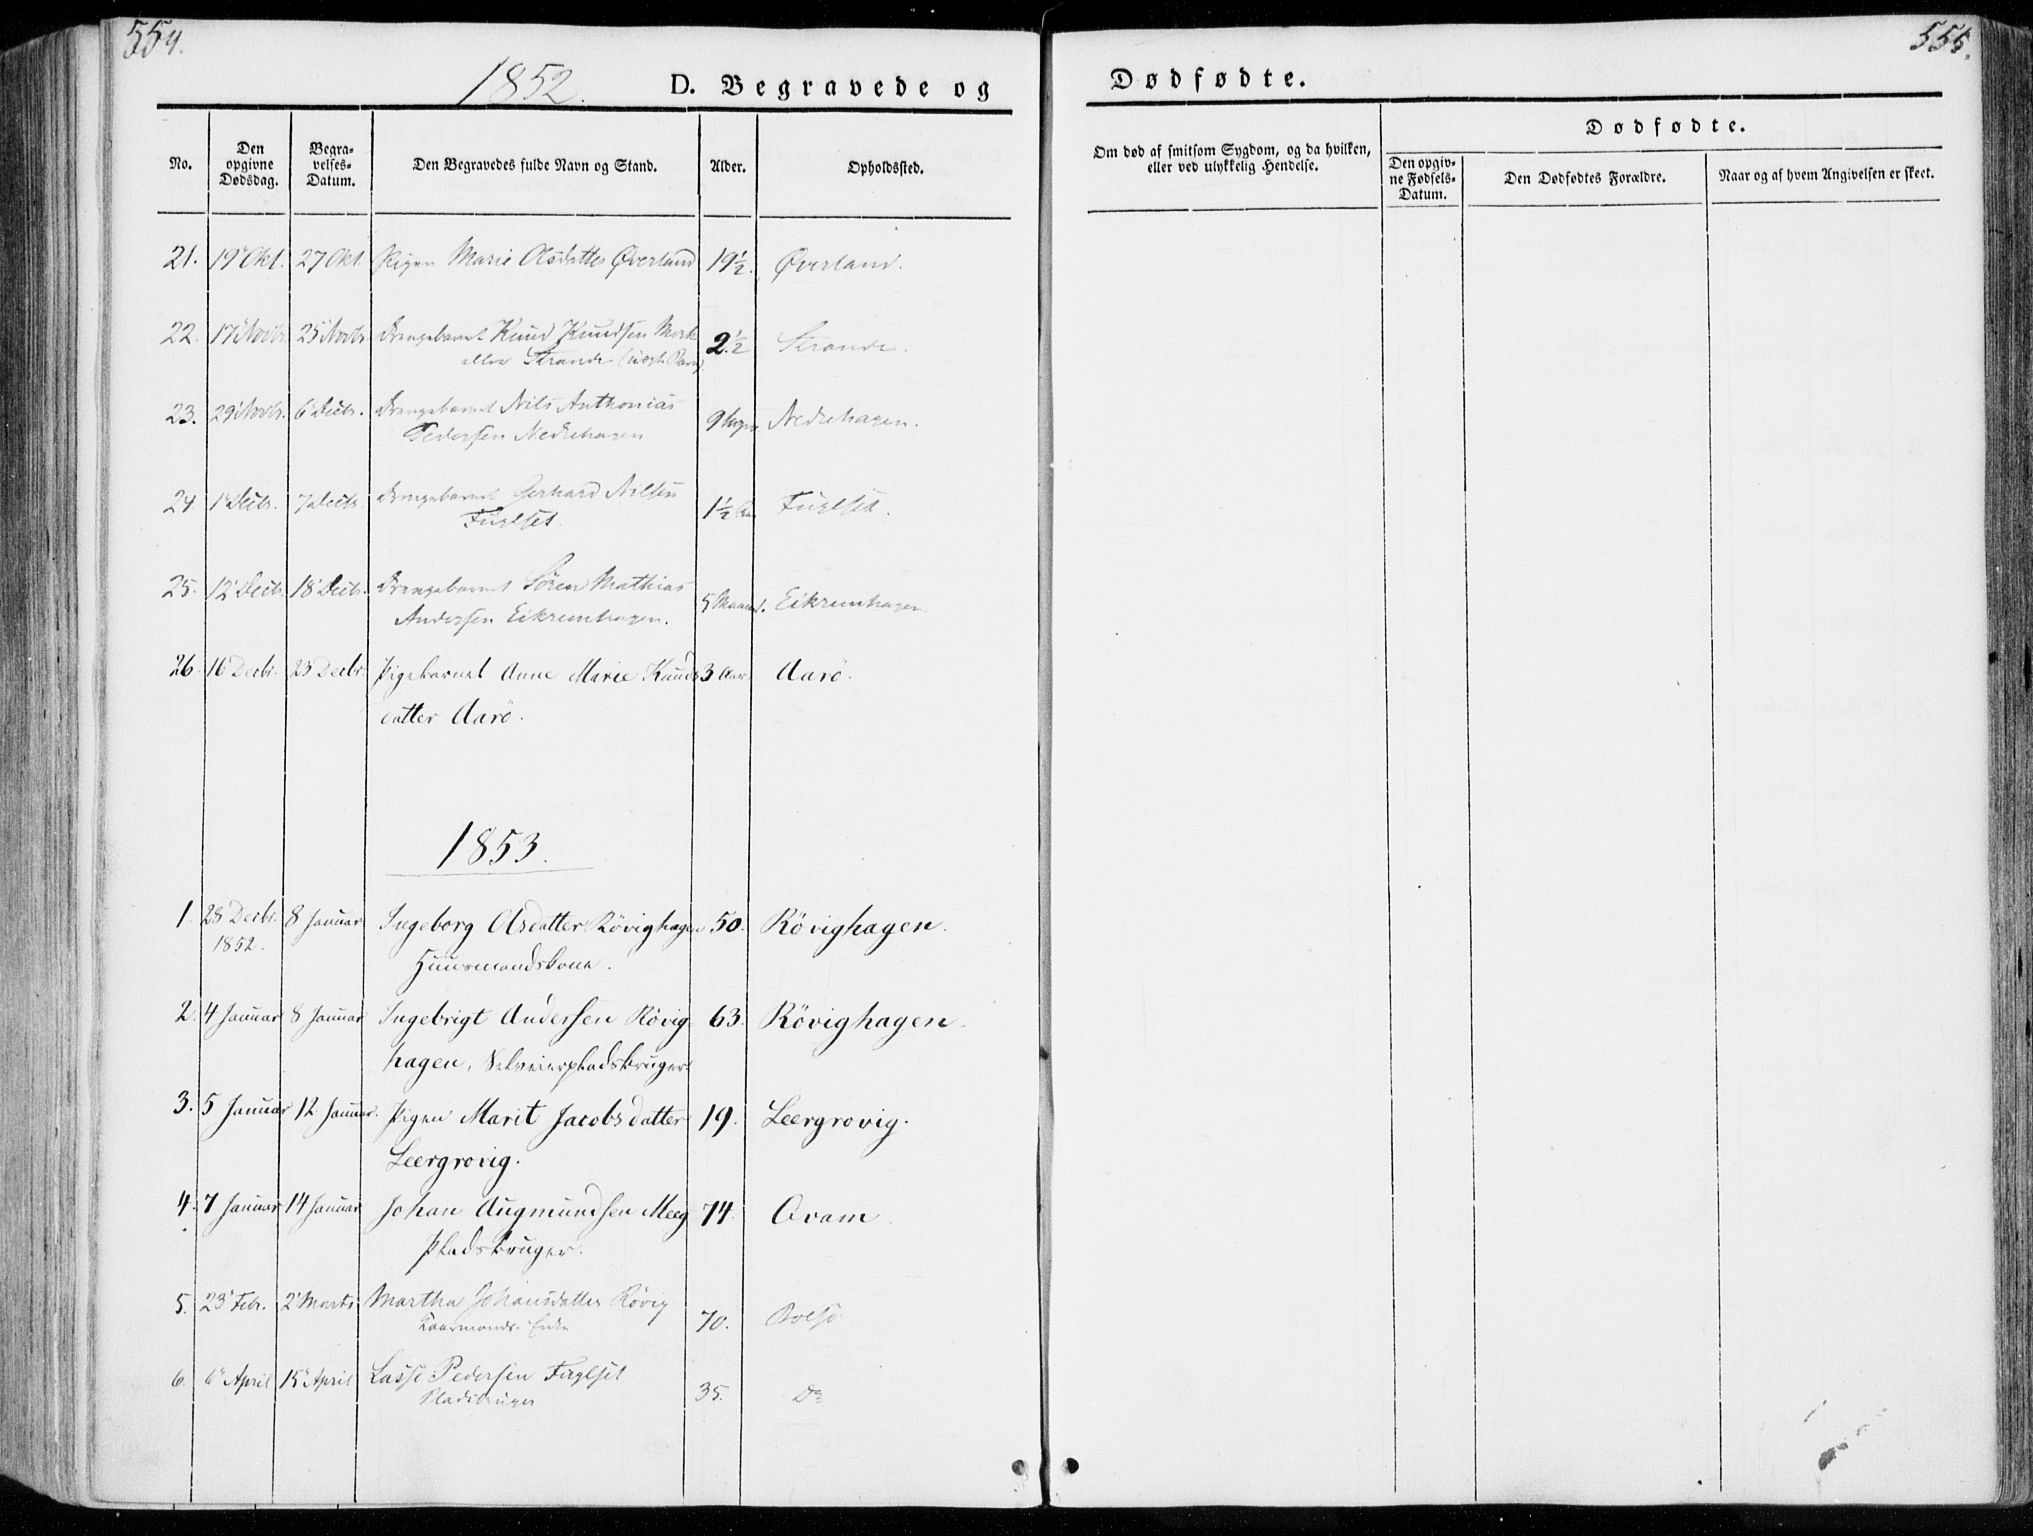 554.
1852. D. Begravede og
No. Den opgivne Dødsdag. Begravelses-Datum. Den Begravedes fulde Navn og Stand. Alder. Opholdssted.
21. 19 Okt. 27 Okt. Pigen Marie Olsdatter Øverland 19½ Øverland.
22. 17 Novbr. 25 Novbr. Drengebarnet Knud Knudsen Mork 2½ Strande.
eller Strande
23. 29 Novbr. 6 Decbr. Drengebarnet Nils Anthonias 9 Nedrehagen.
Pedersen Nedrehagen
24. 1 Decbr. 7 Decbr. Drengebarnet Gerhard Nilsen 1½ Fuglset.
Fuglset.
25. 12 Decbr. 18 Decbr. Drengebarnet Sören Mathias 5 Maaned. Eikremhagen.
Andersen Eikremhagen.
26. 16 Decbr. 23 Decbr. Pigebarnet Anne Marie Knuds 3 Aar. Aarö.
datter Aarö.
1853.
1. 28 Decbr. 8 Januar Ingeborg Olsdatter Rövighagen 50. Rövighagen.
1852. Huusmandskone.
2. 4 Januar 8 Januar Ingebrigt Andersen Rövig 63. Rövighagen.
hagen, Selveierpladsbruger
3. 5 Januar 12 Januar. Pigen Marit Jacobsdatter 19. Leergrovig.
Leergrovig.
4. 7 Januar 14 Januar Johan Augmundsen Meeg 74. Qvam
Pladsbruger.
5. 23 Febr. 2 Marts Martha Johansdatter Rövig 70. Bolsö
Enke
6. 6 April 15 April Lasse Pedersen Fuglset 35. Do
Pladsbruger
555.
Dødfødte.
Om død af smitsom Sygdom, og da hvilken, eller ved ulykkelig Hendelse.
Dødfødte.
Den opgivne Fødsels-Datum. Den Dødfødtes Forældre. Naar og af hvem Angivelsen er skeet.